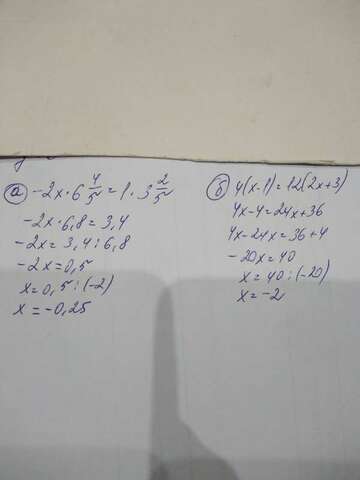 а) -2x·6 4/5 = 1·3 2/5
-2x·6,8 = 3,4
-2x = 3,4 : 6,8
-2x = 0,5
x = 0,5 : (-2)
x = -0,25
б) 4(x-1) = 12(2x+3)
4x-4 = 24x+36
4x-24x = 36+4
-20x = 40
x = 40 : (-20)
x = -2